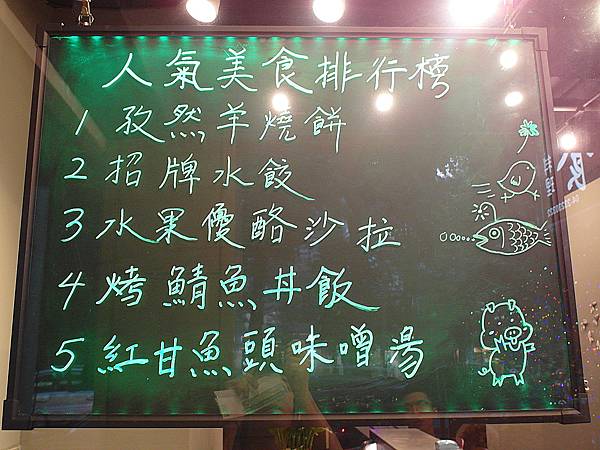 人氣美食排行榜
1 孜然羊燒餅
2 招牌水餃
3 水果優酪沙拉
4 烤鯖魚丼飯
5 紅甘魚頭味噌湯